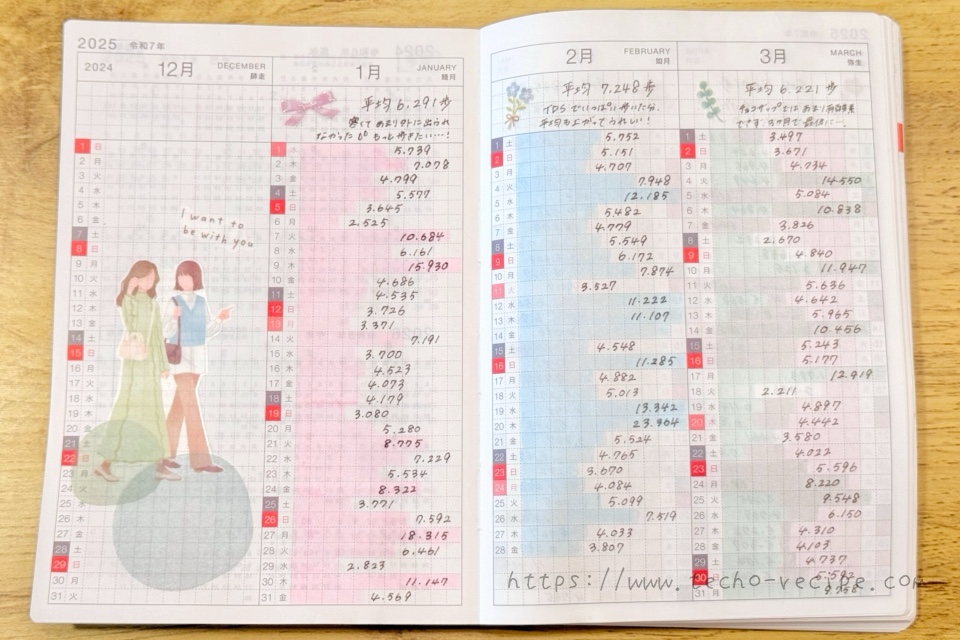 2025 令和7年
2024 12月 DECEMBER 師走
1 日
2 月
3 火
4 水
5 木
6 金
7 土
8 日
9 月
10 火
11 水
12 木
13 金
14 土
15 日
16 月
17 火
18 水
19 木
20 金
21 土
22 日
23 月
24 火
25 水
26 木
27 金
28 土
29 日
30 月
31 火
I want to
be with you
1月 JANUARY 睦月
平均 6.291歩
寒くてあまり外に出られ
なかったが もっと歩きたい…!
1 水 5.739
2 木 7.078
3 金 4.799
4 土 5.577
5 日 3.645
6 月 2.525
7 火 10.684
8 水 6.161
9 木 15.930
10 金 4.686
11 土 4.535
12 日 3.726
13 月 3.371
14 火 7.191
15 水 3.700
16 木 4.523
17 金 4.073
18 土 4.179
19 日 3.080
20 月 5.280
21 火 8.775
22 水 7.229
23 木 5.534
24 金 8.322
25 土 3.771
26 日 7.592
27 月 18.315
28 火 6.461
29 水 2.823
30 木 11.147
31 金 4.569
2月 FEBRUARY 如月
平均 7.248歩
TDSでいっぱい歩いた分、
平均も上がってうれしい!
1 土 5.752
2 日 5.151
3 月 4.707
4 火 7.948
5 水 12.185
6 木 5.482
7 金 4.779
8 土 5.549
9 日 6.172
10 月 7.874
11 火 3.527
12 水 11.222
13 木 11.107
14 金
15 土 4.548
16 日 11.285
17 月 4.882
18 火 5.013
19 水 13.342
20 木 23.364
21 金 5.524
22 土 4.765
23 日 3.670
24 月 4.084
25 火 5.099
26 水 7.519
27 木 4.033
28 金 3.807
3月 MARCH 弥生
平均 6.221歩
チョコザップでは あまり
できず。3ヶ月で最低に…。
1 土 3.497
2 日 3.671
3 月 4.734
4 火 14.550
5 水 5.084
6 木 10.838
7 金 3.826
8 土 2.670
9 日 4.840
10 月 11.947
11 火 5.636
12 水 4.642
13 木 5.965
14 金 10.456
15 土 5.243
16 日 5.177
17 月 12.919
18 火 2.211
19 水 4.897
20 木 4.442
21 金 3.580
22 土 4.022
23 日 5.596
24 月 8.220
25 火 9.548
26 水 6.150
27 木 4.310
28 金 4.103
29 土 4.737
30 日
31 月
https://www.techo-recipe.com